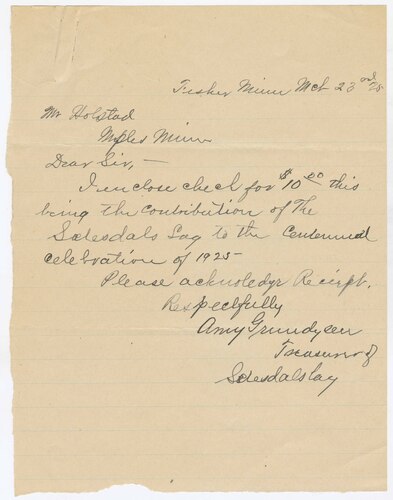 Fisher Minn Mch 23rd 25
Mr Holstad
Mpls Minn
Dear Sir,—
I inclose check for $10.00 this
being the contribution of The
Solesdals Lag to the Centennial
celebration of 1925-
Please acknoledge Receipt.
Respectfully
Amy
Treasurer of
Solesdalslag